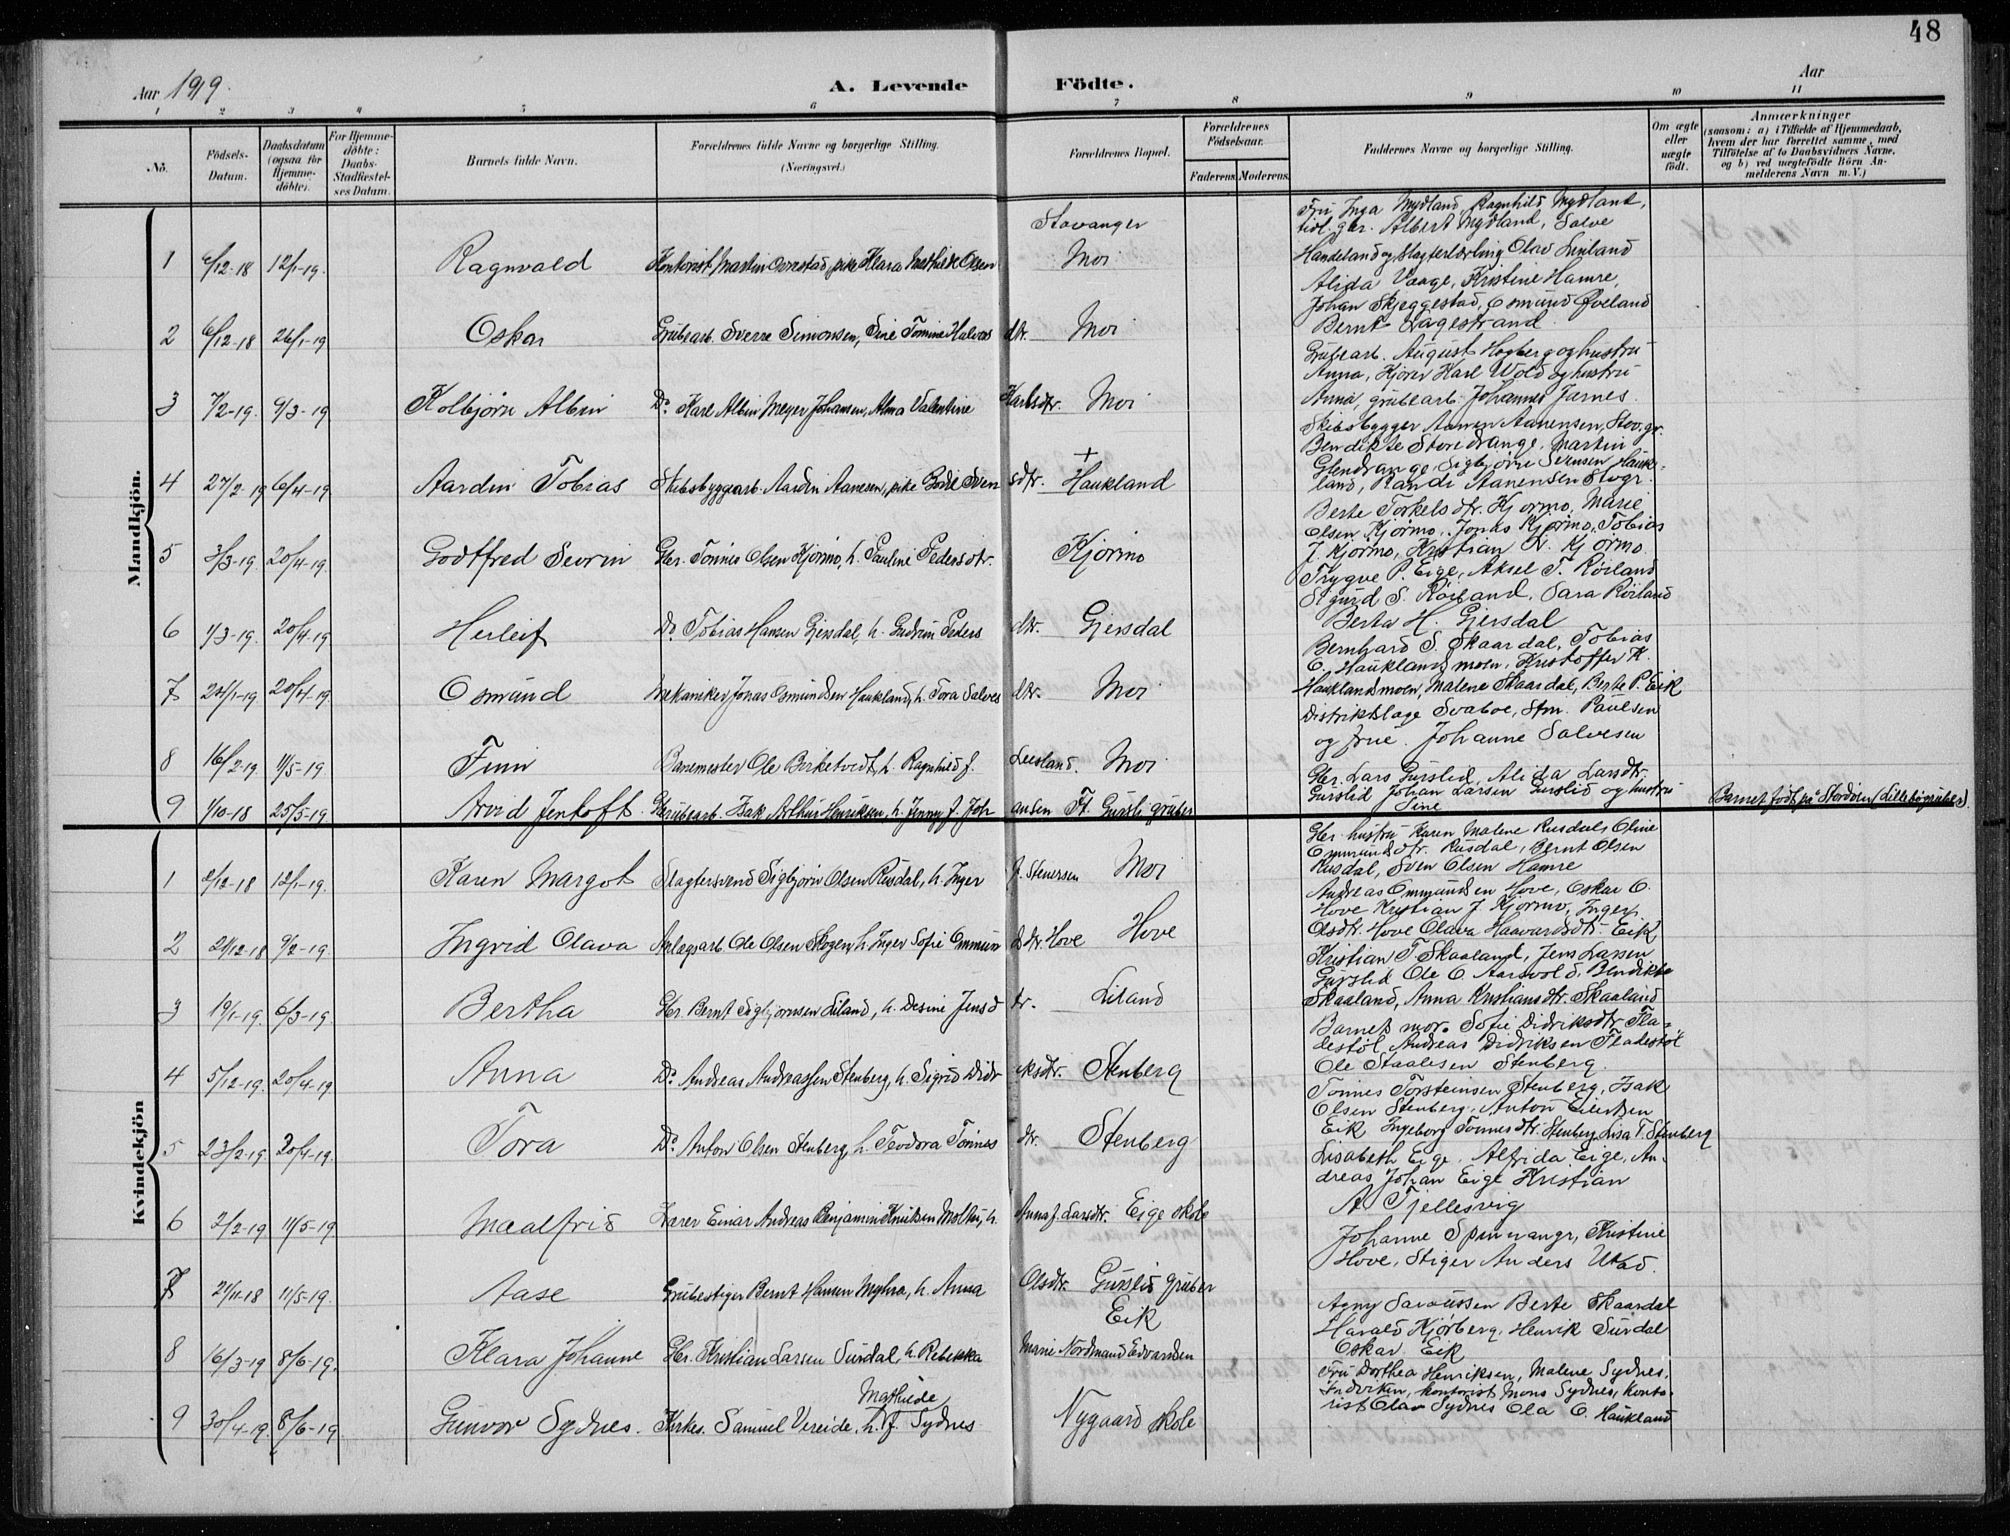 48
Aar 1919.
A. Levende Födte.
Aar
1 2 3 4 5 6 7 8 9 10 11
No.
Födsels-Datum.
Daabsdatum (ogsaa for Hjemmedöbte).
For Hjemmedöbte: Daabs-Stadfæstelses Datum.
Barnets fulde Navn.
Forældrenes fulde Navne og borgerlige Stilling. (Næringsvei.)
Forældrenes Bopæl.
Forældrenes Födselsaar.
Faderens. Moderens.
Faddernes Navne og borgerlige Stilling.
Om ægte eller uægte födt.
Anmærkninger
(saasom: a) i Tilfælde af Hjemmedaab, hvem der har forrettet samme, med Tilföielse af to Daabsvidners Navne, og b) ved uægtefödte Börn Anmelderens Navn m. V.)
Mandkjön.
1 6/12-18 12/1-19. Ragnvald Kontorist Martin Ovrestad, pike Klara Mathilde Olsen Stavanger Moi
Fru Inga Mydland, Ragnhild Mydland,
tidl. gbr. Albert Mydland, Salve
Handeland og slagterlærling Olav Leiland
2 6/12-18 26/1-19 Oskar Grubearb. Sverre Simonsen, Sine Tomine Halvorsdtr. Moi
Alida Vaage, Kristine Hamre,
Johan Skjeggestad, Osmund Øveland
Bernt Lagestrand.
3 7/2-19. 9/3-19 Kolbjørn Albin Do. Karl Albin Meyer Johansen, Alma Valentine Karlsdtr. Moi
Grubearb. August Hogberg og hustru
Anna, Kjører Karl Wold og hustru
Anna, grubearb. Johannes Jarnes.
4 27/2-19 6/4-19 Aardin Tobias Skibsbyggearb. Aardin Aanensen, pike Bodil Svensdtr. + Haukland
Skibsbygger Aanen Aanensen, Stov.gr.
Bendikte Storedrange, Martin
Glendrange, Sigbjørn Svensen Haukland,
Randi Aanensen Stvgr.
5 3/3-19. 20/4-19. Godtfred Sevrin Gbr. Tonnes Olsen Kjørmo, h. Pauline Pedersdtr. Kjørmo
Berte Torkelsdtr. Kjørmo, Marie
Olsen Kjørmo, Jonas Kjørmo, Tobias
J. Kjørmo, Kristian N. Kjørmo.
6 1/3-19. 20/4-19. Herleif Do. Tobias Hansen Gjersdal, h. Gudrun Pedersdtr. Gjersdal
Trygve P. Eige, Aksel T. Røiland
Sigurd S. Røiland, Sara Røiland
Berta H. Gjersdal
7 20/4-19. Osmund Mekaniker Jonas Osmundsen Haukland, h. Tora Salvesdtr. Moi
Bernhard S. Skaardal, Tobias
O. Hauklandsmoen, Kristoffer K.
Hauklandsmoen, Malene Skaardal, Berte P. Eik
8 16/2-19 11/5-19 Finn Banemester Ole Birketvedt, h. Ragnhild f. Leesland. Moi
Distriktslæge Svaboe, Stm. Paulsen
og frue. Johanne Salvesen
9 1/10-18 25/5-19 Arvid Jentoft Grubearb. Isak Arthur Henriksen, h. Jenny f. Johansen Ft. Gursli gruber
Gbr. Lars Gurslid, Alida Larsdtr.
Gurslid Johan Larsen Gurslid og hustru
Sine
Barnet født på Stordøen (Lillebøgruber).
Kvindekjön
1 2/12-18 12/1-19. Karen Margot Slagtersvend Sigbjørn Olsen Rusdal, h. Inger f. Stenersen Moi
Gbr. hustru Karen Malene Rusdal, Oline
Ommundsdtr. Rusdal, Bernt Olsen
Rusdal, Sven Olsen Hamre
2 21/12-18 9/2-19. Ingrid Olava Anlægsarb. Ole Olsen Skogen, h. Inger Sofie Ommundsdtr. Hove Hove
Andreas Ommundsen Hove, Oskar O.
Hove Kristian J. Kjørmo, Inger
Olsdtr. Hove Olava Haavardsdtr. Eik
3 19/1-19. 6/3-19. Bertha Gbr. Bernt Sigbjørnsen Liland, h. Desine Jensdtr. Liland
Kristian T. Skaaland, Jens Larsen
Gurslid Ole O. Aamvold. Bendikte
Skaaland, Anna Kristiansdtr. Skaaland
4 5/12-19. 20/4-19. Anna Do. Andreas Andreassen Stenberg, h. Sigrid Didriksdtr. Stenberg
Barnets mor. Sofie Didriksdtr. Fladestøl,
Andreas Didriksen Fladestøl
Ole Staalesen Stenberg.
5 23/2-19 20/4-19. Tora Do. Anton Olsen Stenberg, h. Teodora Tonnesdtr. Stenberg
Tonnes Torsteinsen Stenberg, Isak
Olsen Stenberg, Anton Eilertsen
Eik Ingeborg Tonnesdtr. Stenberg Lisa T. Stenberg
6 2/2-19 11/5-19. Maalfrid Lærer Einar Andreas Benjamin Knutsen Moltu, h. Anna f. Larsdtr. Eige skole
Lisabeth Eige. Alfrida Eige, Andreas
Johan Eige Kristian
A. Fjellesvig
7 21/11-18 11/5-19. Aase Grubestiger Bernt Hansen Myhra, h. Anna Olsdtr. Gurslid gruber
Johanne Spinnangr, Kristine
Hove, Stiger Anders Utad.
8 16/3-19 8/6-19. Klara Johanne Gbr. Kristian Larsen Surdal, h. Rebekka Marie Nordmand Edvardsen Eik
Agny Sarausen Berte Skaardal
Harald Kjørberg, Henrik Surdal
Oskar Eik
9 30/4-19 8/6-19 Gunvor Sydnes. Kirkes. Samuel Vereide, h. Mathilde f. Sydnes Nygaard skole
Fru Dorthea Henriksen, Malene Sydnes,
Indviken, kontorist Mons Sydnes, kontorist
Olav Sydnes Ola O. Haukland